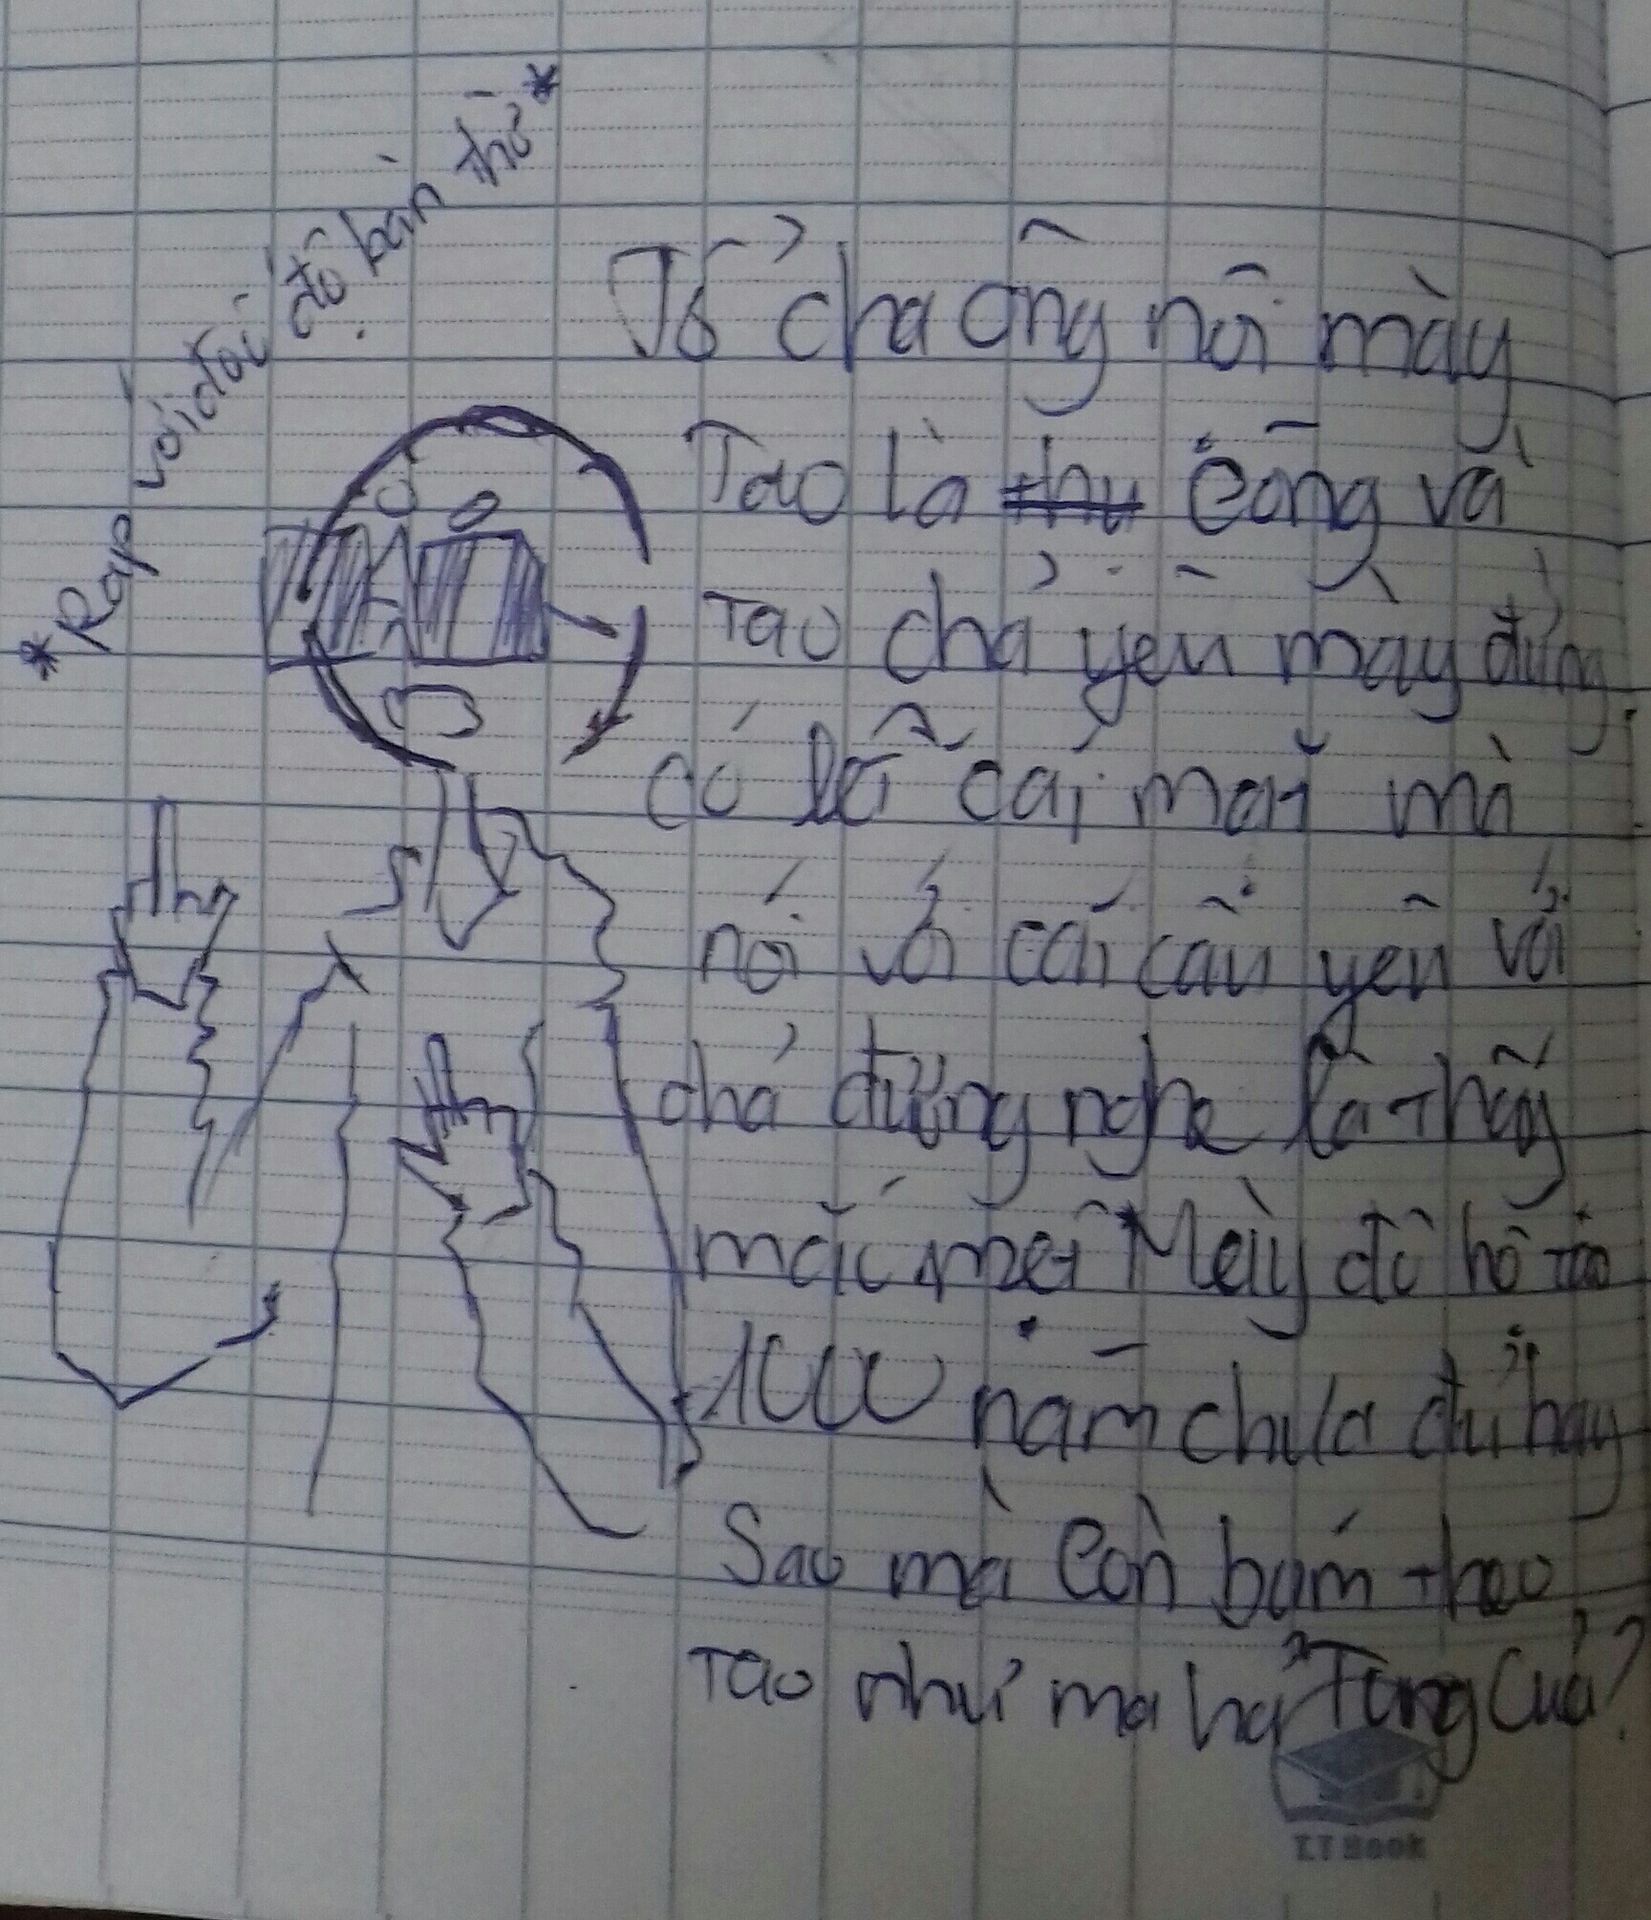 *Rap với thái độ bàn thờ*
Tổ cha ông nội mày
Tao là thụ công và
Tao chả yêu mày đừng
có lỡ cái mặt mà
nói với cái câu yêu với
chả đương nghe là thấy
mắc mệt Mày đô hộ tao
1000 năm chưa đủ hay
Sao mà còn bám theo
Tao như ma hả Tung Của?
T.T Book